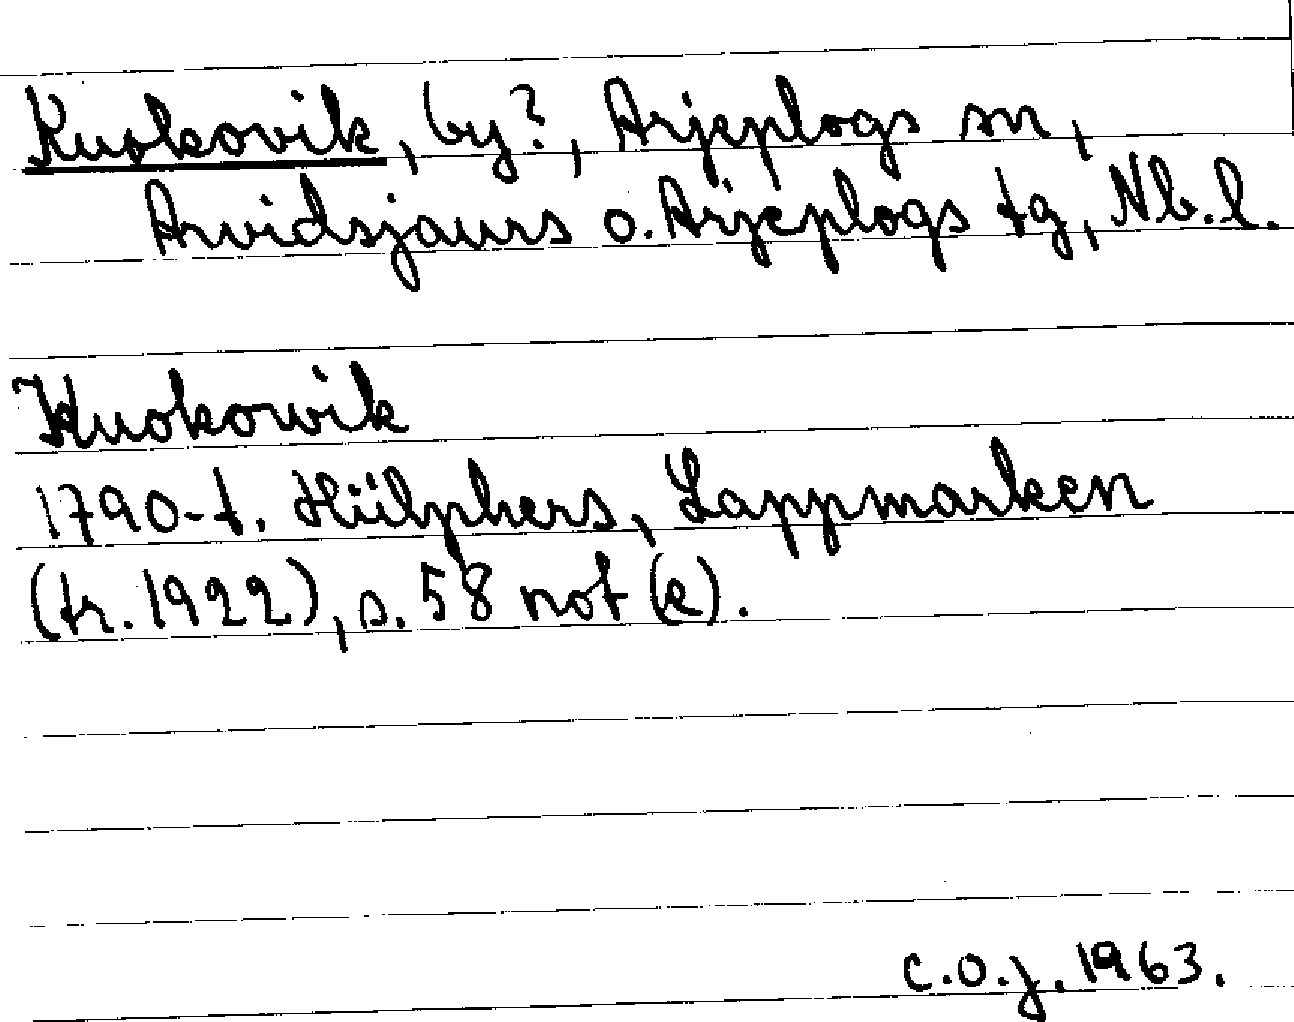 Kuokovik, by?, Arjeplogs sn,
Arvidsjaurs o. Arjeplogs tg, Nb.l.
Kuokowik
1790-t. Hülphers, Lappmarken
(tr. 1922), s. 58 not (e).
C.O.J. 1963.